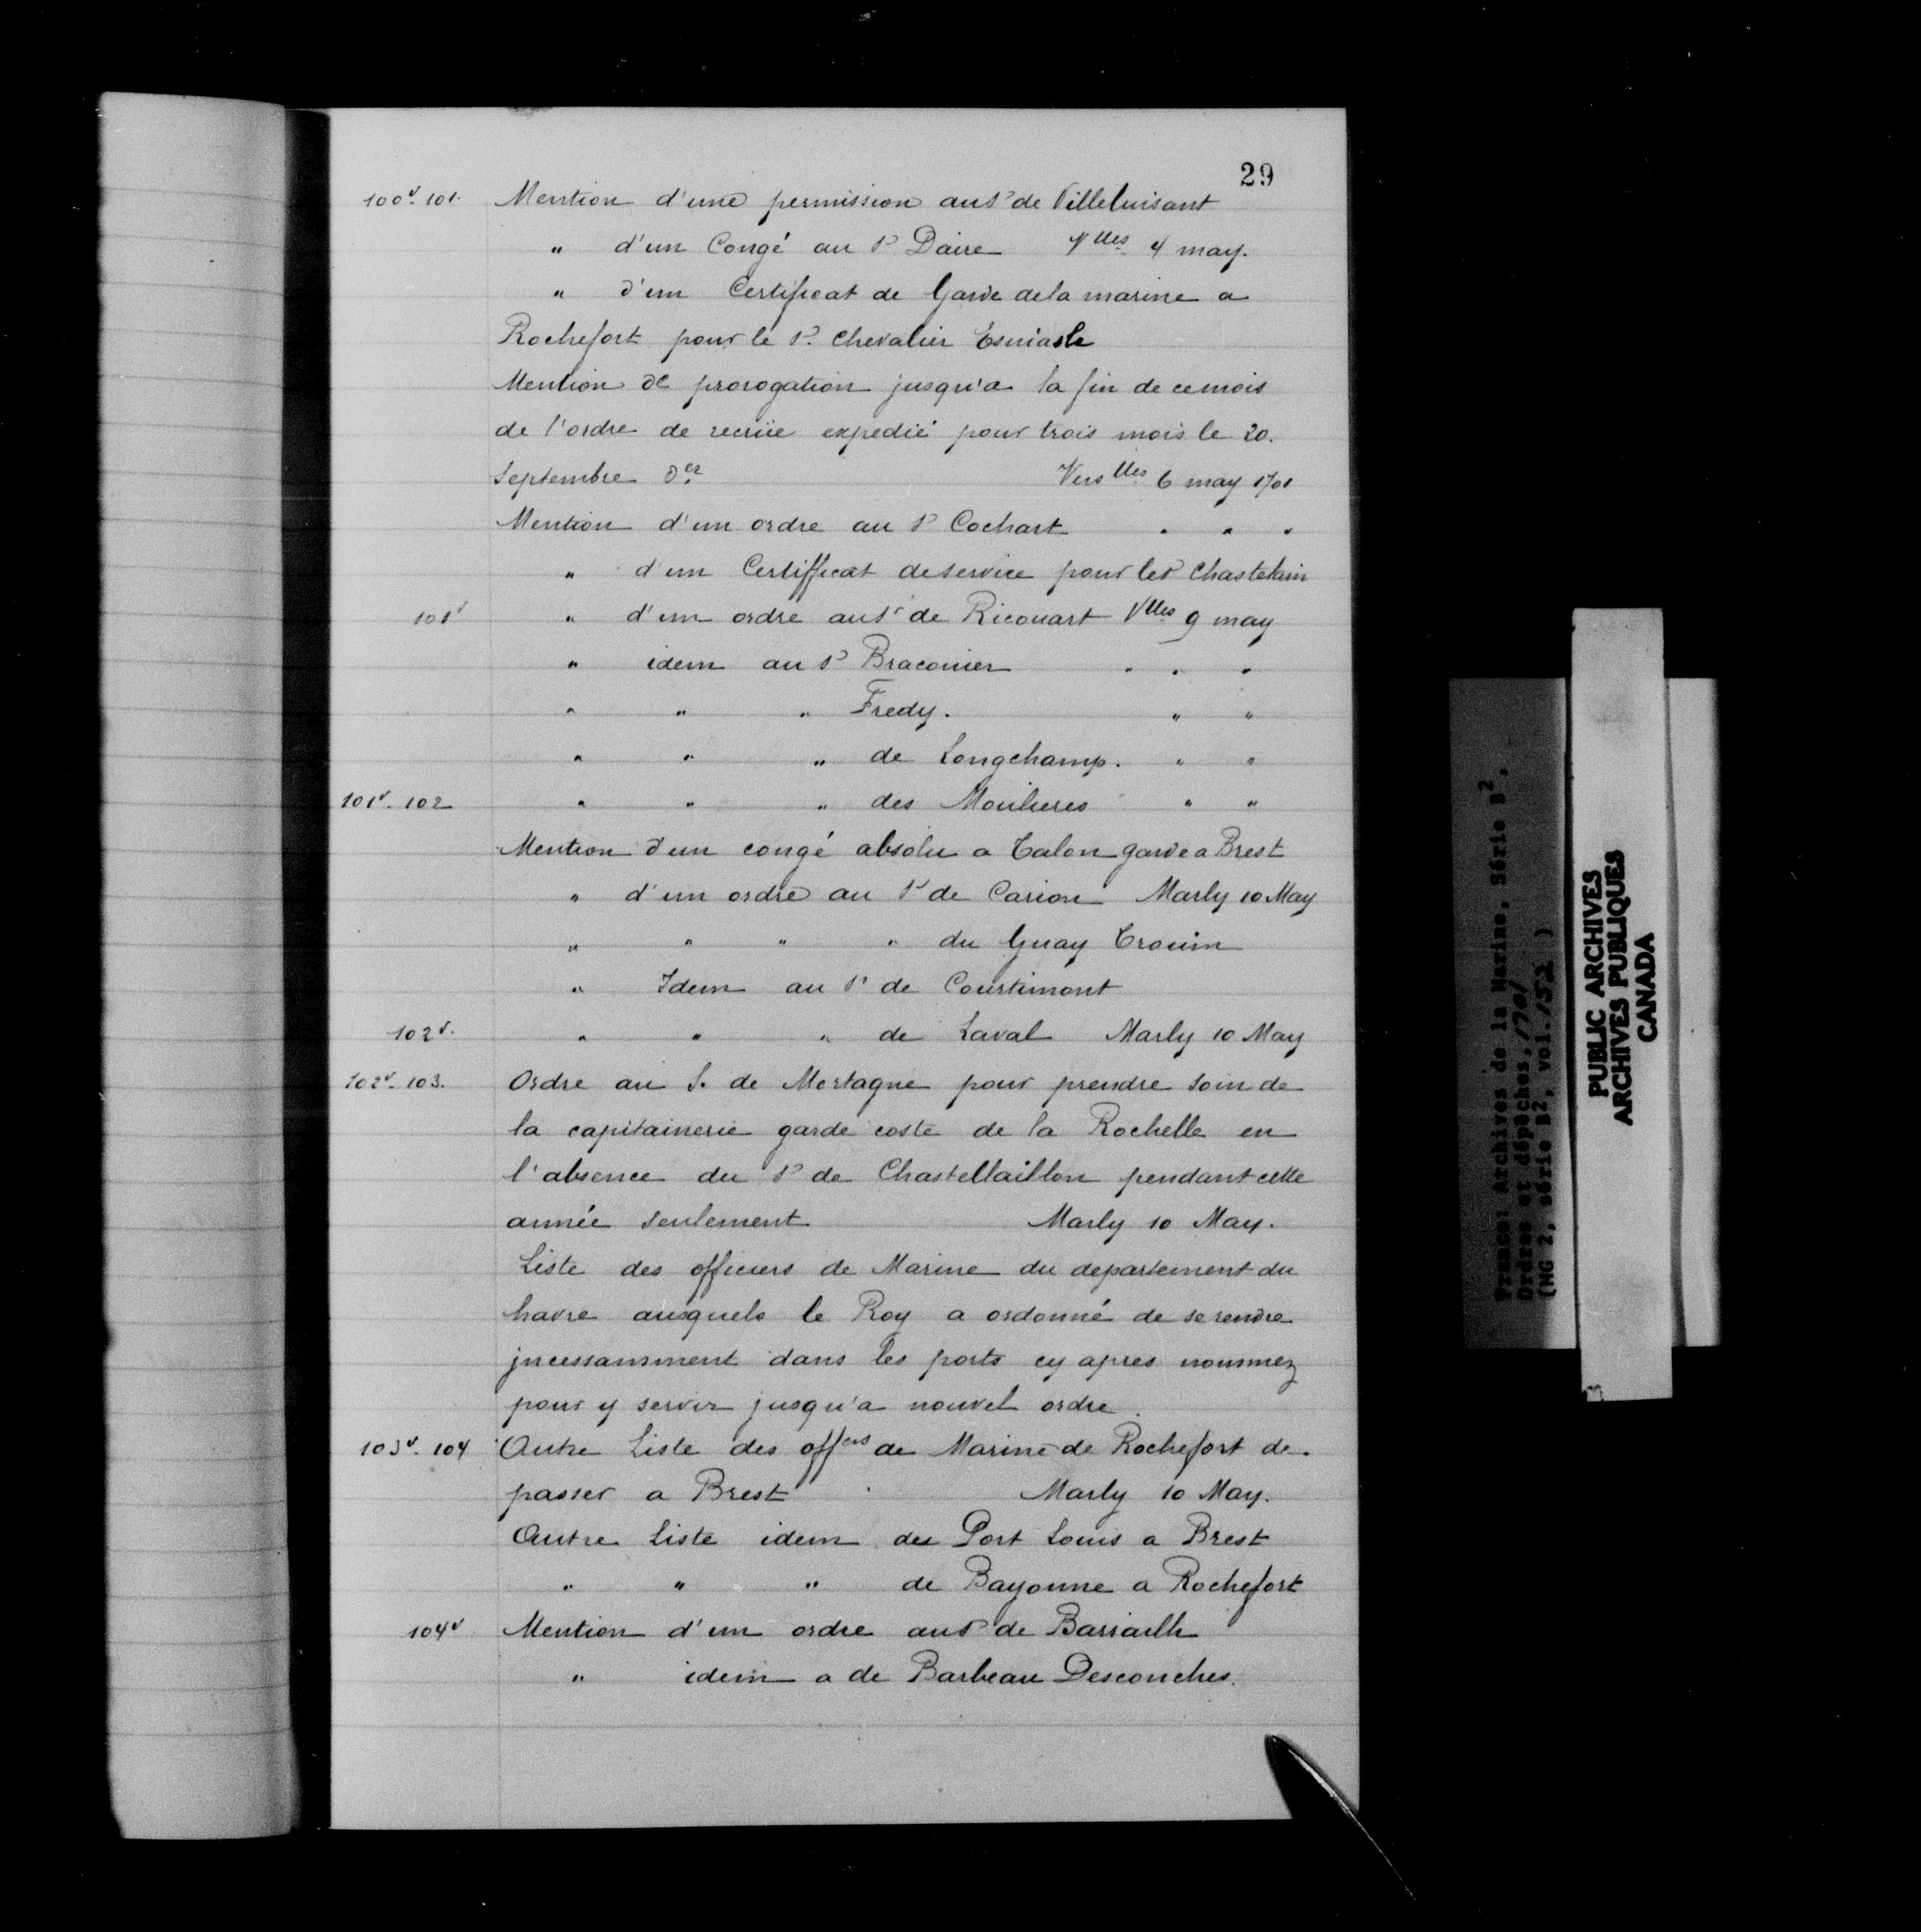 29
100v. 101. Mention d'une permission au Sr de Villeluisant
" d'un Congé au Sr Daire Vlles 4 may.
" d'un Certificat de Garde de la marine a
Rochefort pour le Sr. Chevalier
Mention de prorogation jusqu'a la fin de ce mois
de l'ordre de recrüe expedié pour trois mois le 20.
Septembre der Verslles 6 may 1701
Mention d'un ordre au Sr Cochart " " "
" d'un Certifficat de service pour le Sr Chastelain
101v " d'un ordre au Sr de Ricouart Vlles 9 may
" idem au Sr Braconier " " "
" " " Fredy. " "
" " " de Longchamp. " "
101v. 102 " " " des Moulieres " "
Mention d'un congé absolu a Talon garde a Brest
" d'un ordre au Sr de Carion Marly 10 May
" " " " du Guay Trouin
" Idem au Sr de Courtimont
102v. " " " de Laval Marly 10 May
102v. 103. Ordre au S. de Mortagne pour prendre soin de
la capitainerie garde coste de la Rochelle en
l'absence du Sr de Chastellaillon pendant cette
année seulement Marly 10 May.
Liste des officiers de Marine du departement du
havre ausquels le Roy a ordonné de se rendre
jncessamment dans les ports cy apres nommez
pour y servir jusqu'a nouvel ordre.
103v. 104 Autre Liste des offers de Marine de Rochefort de
passer a Brest Marly 10 May.
Autre Liste idem du Port Louis a Brest
" " " de Bayonne a Rochefort
104v Mention d'un ordre au Sr de Barrailh
" idem a de Barbeau Desconches.
France: Archives de la Marine, Série B2,
Ordres et dépêches, 1701
(MG 2, série B2, vol. 152 )
PUBLIC ARCHIVES
ARCHIVES PUBLIQUES
CANADA